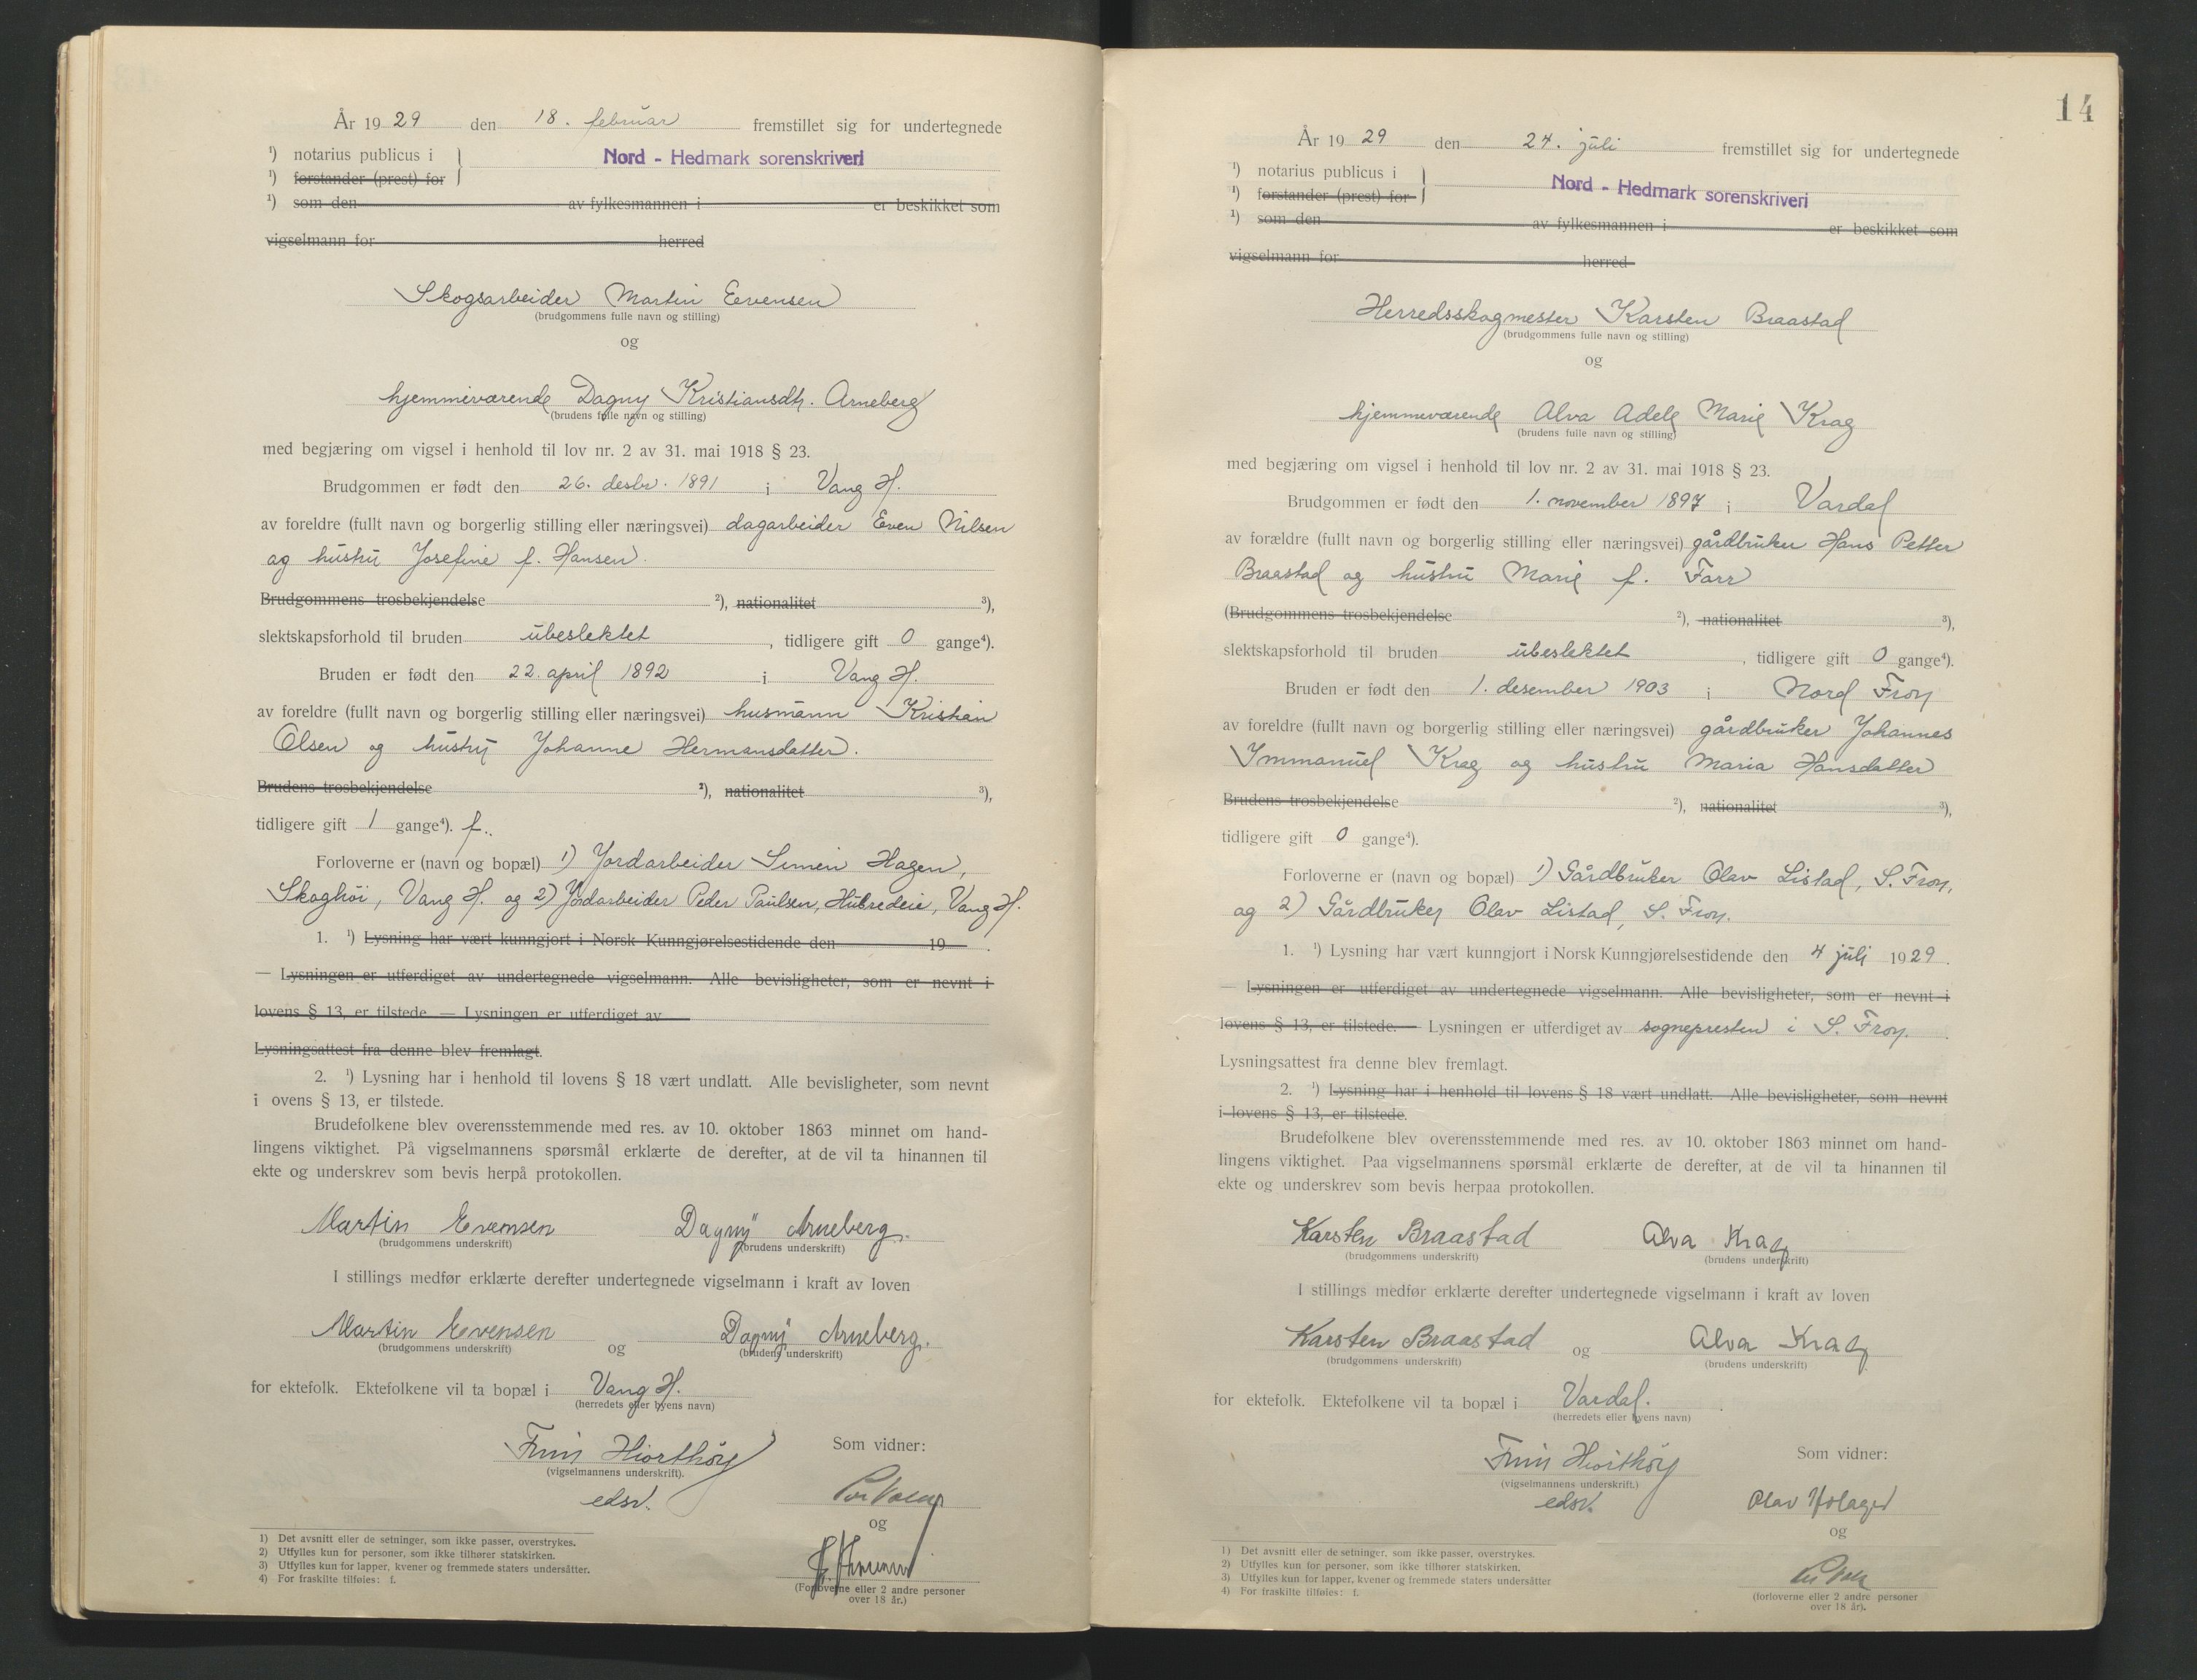 År 1929 den 18. februar fremstillet sig for undertegnede
¹) notarius publicus i
Nord - Hedmark sorenskriveri
¹) forstander (prest) for
¹) som den av fylkesmannen i er beskikket som
vigselmann for herred
Skogsarbeider Martin Evensen
(brudgommens fulle navn og stilling)
og
hjemmeværende Dagny Kristiansdtr. Arneberg
(brudens fulle navn og stilling)
med begjæring om vigsel i henhold til lov nr. 2 av 31. mai 1918 § 23.
Brudgommen er født den 26. desbr. 1891 i Vang H.
av foreldre (fullt navn og borgerlig stilling eller næringsvei) dagarbeider Even Nilsen
og hustru Josefine f. Hansen.
Brudgommens trosbekjendelse ²), nationalitet ³),
slektskapsforhold til bruden ubeslektet, tidligere gift 0 gange⁴).
Bruden er født den 22. april 1892 i Vang H.
av foreldre (fullt navn og borgerlig stilling eller næringsvei) husmann Kristian
Olsen og hustru Johanne Hermansdatter.
Brudens trosbekjendelse ²), nationalitet ³),
tidligere gift 1 gange⁴). f.
Forloverne er (navn og bopæl) 1) Jordarbeider Simen Hagen,
Skoghøi, Vang H. og 2) Jordarbeider Peder Paulsen, Hubredeie, Vang H.
1. ¹) Lysning har vært kunngjort i Norsk Kunngjørelsestidende den 19 .
— Lysningen er utferdiget av undertegnede vigselmann. Alle bevisligheter, som er nevnt i
lovens § 13, er tilstede. — Lysningen er utferdiget av
Lysningsattest fra denne blev fremlagt.
2. ¹) Lysning har i henhold til lovens § 18 vært undlatt. Alle bevisligheter, som nevnt
i ovens § 13, er tilstede.
Brudefolkene blev overensstemmende med res. av 10. oktober 1863 minnet om hand-
lingens viktighet. På vigselmannens spørsmål erklærte de derefter, at de vil ta hinannen til
ekte og underskrev som bevis herpå protokollen.
Martin Evensen Dagny Arneberg.
(brudgommens underskrift) (brudens underskrift)
I stillings medfør erklærte derefter undertegnede vigselmann i kraft av loven
Martin Evensen og Dagny Arneberg.
(brudgommens underskrift) (brudens underskrift)
for ektefolk. Ektefolkene vil ta bopæl i Vang H.
(herredets eller byens navn)
Friis Hiorthøy Som vidner:
(vigselmannens underskrift).
edsv.
og
(Forloverne eller 2 andre personer
over 18 år.)
1) Det avsnitt eller de setninger, som ikke passer, overstrykes.
2) Utfylles kun for personer, som ikke tilhører statskirken.
3) Utfylles kun for lapper, kvener og fremmede staters undersåtter.
4) For fraskilte tilføies: f.
14
År 1929 den 24. juli fremstillet sig for undertegnede
¹) notarius publicus i
Nord - Hedmark sorenskriveri
¹) forstander (prest) for
¹) som den av fylkesmannen i er beskikket som
vigselmann for herred
Herredsskogmester Karsten Braastad
(brudgommens fulle navn og stilling)
og
hjemmeværende Alva Adele Marie Krag
(brudens fulle navn og stilling)
med begjæring om vigsel i henhold til lov nr. 2 av 31. mai 1918 § 23.
Brudgommen er født den 1. november 1897 i Vardal
av forældre (fullt navn og borgerlig stilling eller næringsvei) gårdbruker Hans Petter
Braastad og hustru Marie f. Farr
(Brudgommens trosbekjendelse ²), nationalitet ³),
slektskapsforhold til bruden ubeslektet, tidligere gift 0 gange⁴).
Bruden er født den 1. desember 1903 i Nord Fron
av foreldre (fullt navn og borgerlig stilling eller næringsvei) gårdbruker Johannes
Immanuel Krag og hustru Maria Hansdatter
Brudens trosbekjendelse ²), nationalitet ³),
tidligere gift 0 gange⁴).
Forloverne er (navn og bopæl) 1) Gårdbruker Olav Listad, S. Fron,
og 2) Gårdbruker Olav Listad, S. Fron.
1. ¹) Lysning har vært kunngjort i Norsk Kunngjørelsestidende den 4 juli 1929.
— Lysningen er utferdiget av undertegnede vigselmann. Alle bevisligheter, som er nevnt i
lovens § 13, er tilstede. — Lysningen er utferdiget av sognepresten i S. Fron.
Lysningsattest fra denne blev fremlagt.
2. ¹) Lysning har i henhold til lovens § 18 vært undlatt. Alle bevisligheter, som nevnt
i lovens § 13, er tilstede.
Brudefolkene blev overensstemmende med res. av 10. oktober 1863 minnet om hand-
lingens viktighet. Paa vigselmannens spørsmål erklærte de derefter, at de vil ta hinannen til
ekte og underskrev som bevis herpaa protokollen.
Karsten Braastad Alva Krag
(brudgommens underskrift) (brudens underskrift)
I stillings medfør erklærte derefter undertegnede vigselmann i kraft av loven
Karsten Braastad og Alva Krag
(brudgommens underskrift) (brudens underskrift)
for ektefolk. Ektefolkene vil ta bopæl i Vardal.
(herredets eller byens navn)
Friis Hiorthøy Som vidner:
(vigselmannens underskrift.)
edsv. Olav
og
(forloverne eller 2 andre personer
over 18 år).
1) Det avsnitt eller de setninger, som ikke passer, overstrykes.
2) Utfylles kun for personer, som ikke tilhører statskirken.
3) Utfylles kun for lapper, kvener og fremmede staters undersåtter
4) For fraskilte tilføies: f.